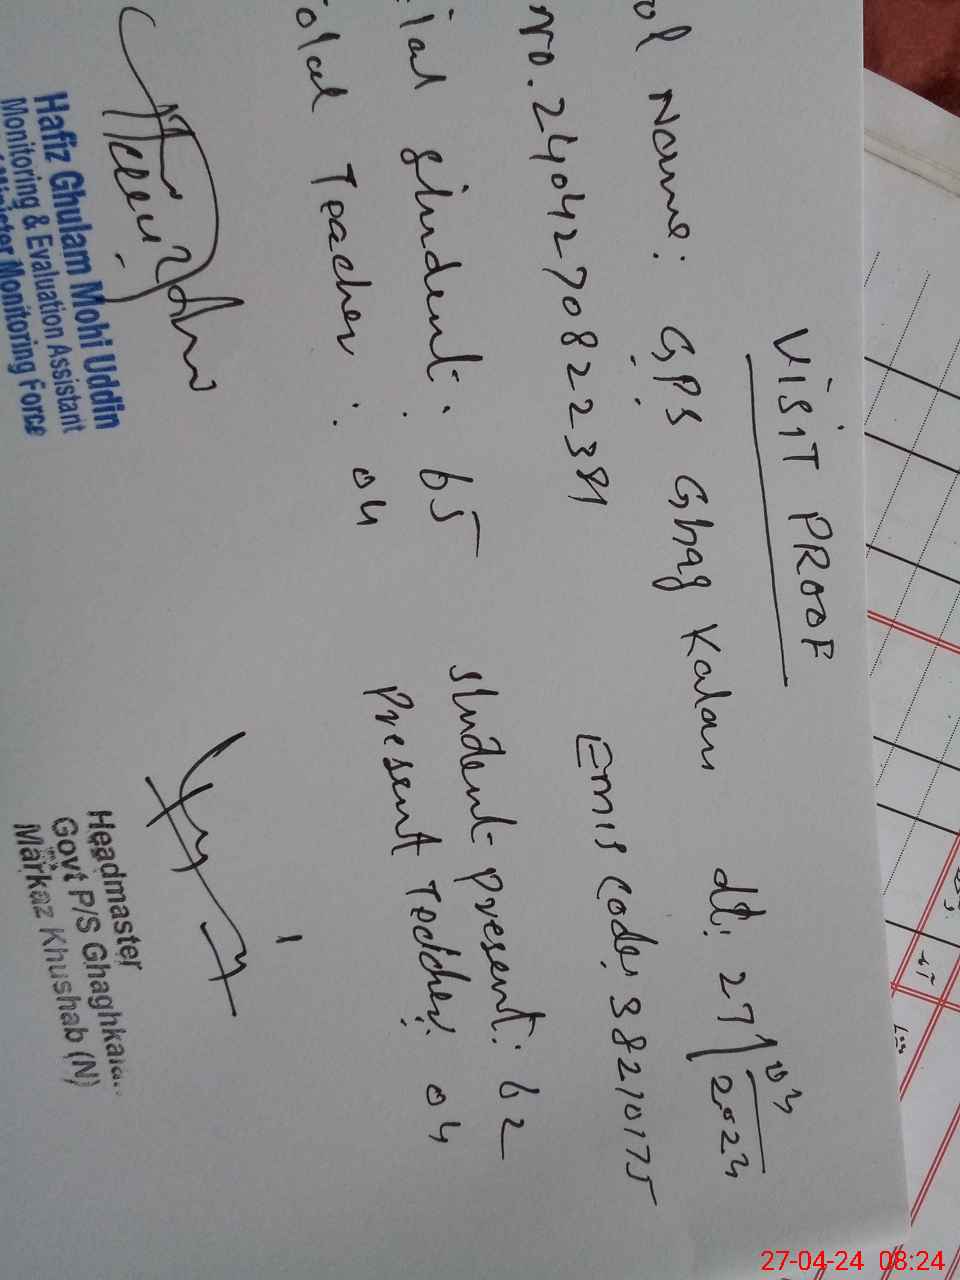 VISIT PROOF
ol Name: G.P.S Ghag Kalan dt: 27/04/2024
No. 2404270822381 Emis Code: 38210175
tal Student: 65 Student Present: 62
otal Teacher: 04 Present Teacher: 04
Hafiz Ghulam Mohi Uddin
Monitoring & Evaluation Assistant
Minister Monitoring Force
Headmaster
Govt P/S Ghaghkalan
Markaz Khushab (N)
27-04-24 08:24